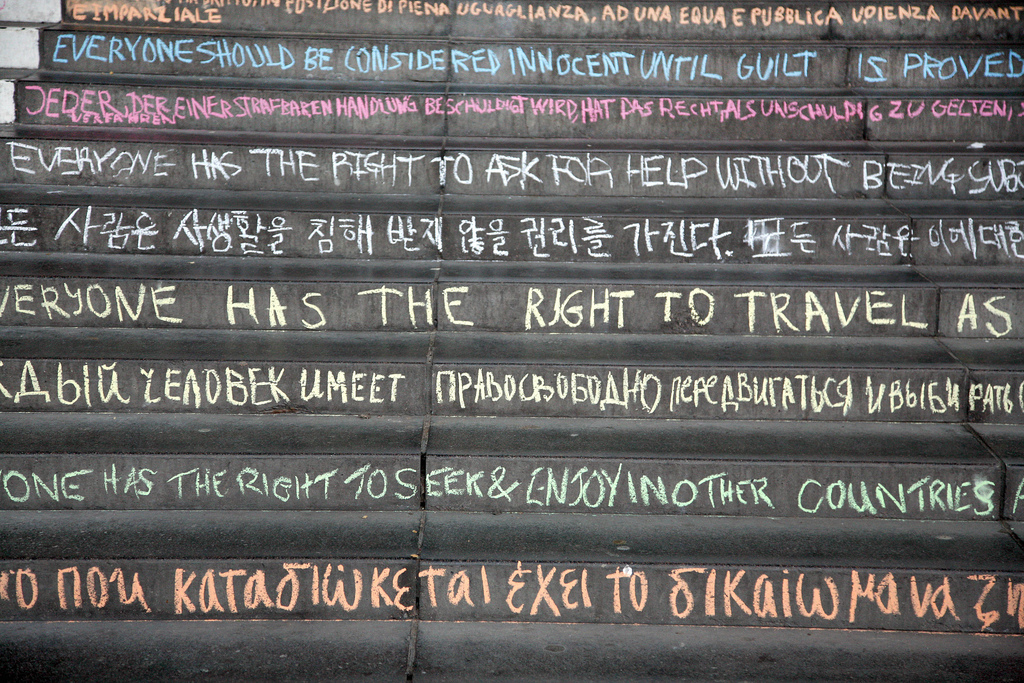 IN POSIZIONE DI PIENA UGUAGLIANZA, AD UNA EQUA E PUBBLICA UDIENZA DAVANT
E IMPARZIALE
EVERYONE SHOULD BE CONSIDERED INNOCENT UNTIL GUILT IS PROVED
JEDER, DER EINER STRAFBAREN HANDLUNG BESCHULDIGT WIRD, HAT DAS RECHT ALS UNSCHULDIG ZU GELTEN,
VERFAHREN
EVERYONE HAS THE RIGHT TO ASK FOR HELP WITHOUT BEING SUBJ
든 사람은 사생활을 침해 받지 않을 권리를 가진다. 모든 사람은 이에대한
VERYONE HAS THE RIGHT TO TRAVEL AS
ЖДЫЙ ЧЕЛОВЕК ИМЕЕТ ПРАВО СВОБОДНО ПЕРЕДВИГАТЬСЯ И ВЫБИРАТЬ С
YONE HAS THE RIGHT TO SEEK & ENJOY IN OTHER COUNTRIES A
νο που καταδιώκεται έχει το δικαίωμα να ζη